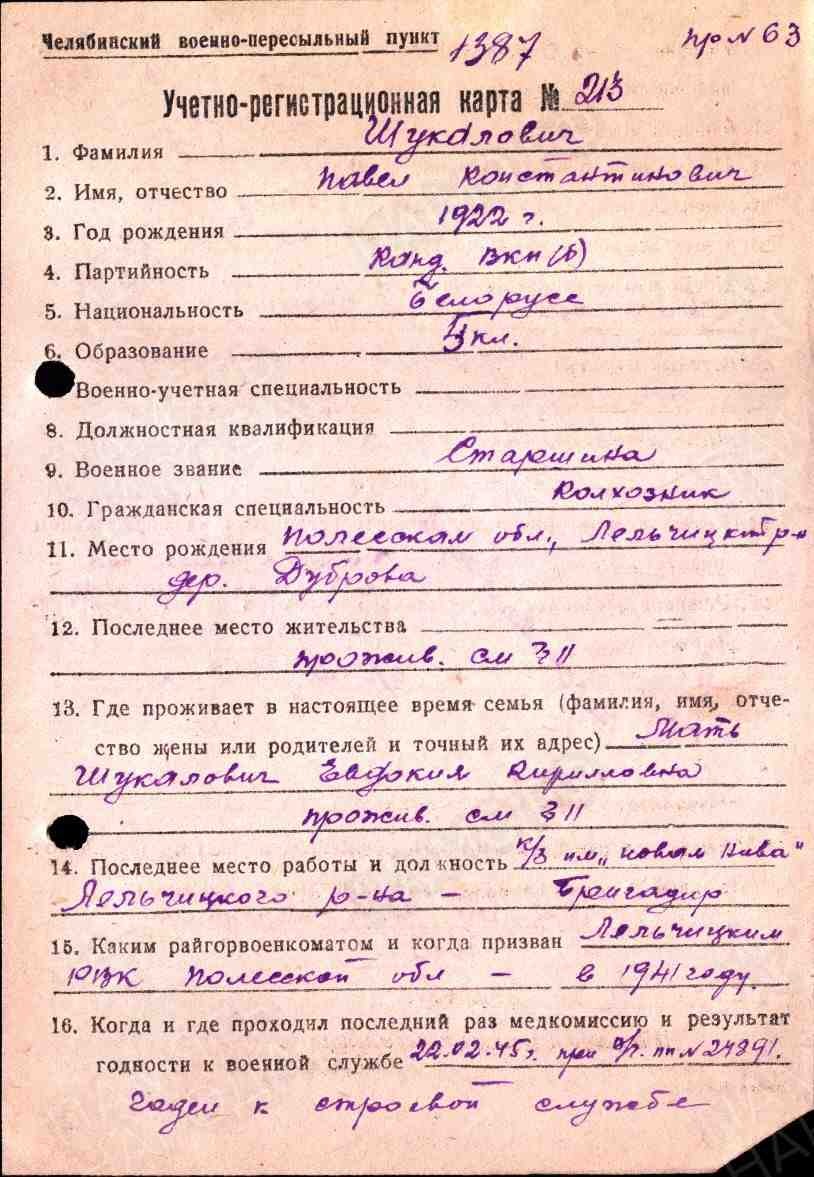 Челябинский военно-пересыльный пункт 1387 пр № 63
Учетно-регистрационная карта № 213
1. Фамилия Шукалович
2. Имя, отчество Павел Константинович
3. Год рождения 1922 г.
4. Партийность Канд. ВКП(б)
5. Национальность Белорусс
6. Образование 5 кл.
Военно-учетная специальность
8. Должностная квалификация
9. Военное звание Старшина
10. Гражданская специальность Колхозник
11. Место рождения Полесская обл., Лельчицк. р-н
дер. Дуброва
12. Последнее место жительства
прожив. см 311
13. Где проживает в настоящее время семья (фамилия, имя, отче-
ство жены или родителей и точный их адрес) Мать
Шукалович Евдокия Кирилловна
прожив. см 311
14. Последнее место работы и должность к/з им „новая Нива"
Лельчицкого р-на — Бригадир
15. Каким райгорвоенкоматом и когда призван Лельчицким
РВК Полесской обл — в 1941 году
16. Когда и где проходил последний раз медкомиссию и результат
годности к военной службе 22.02.45 г. при пп № 24891.
Годен к строевой службе